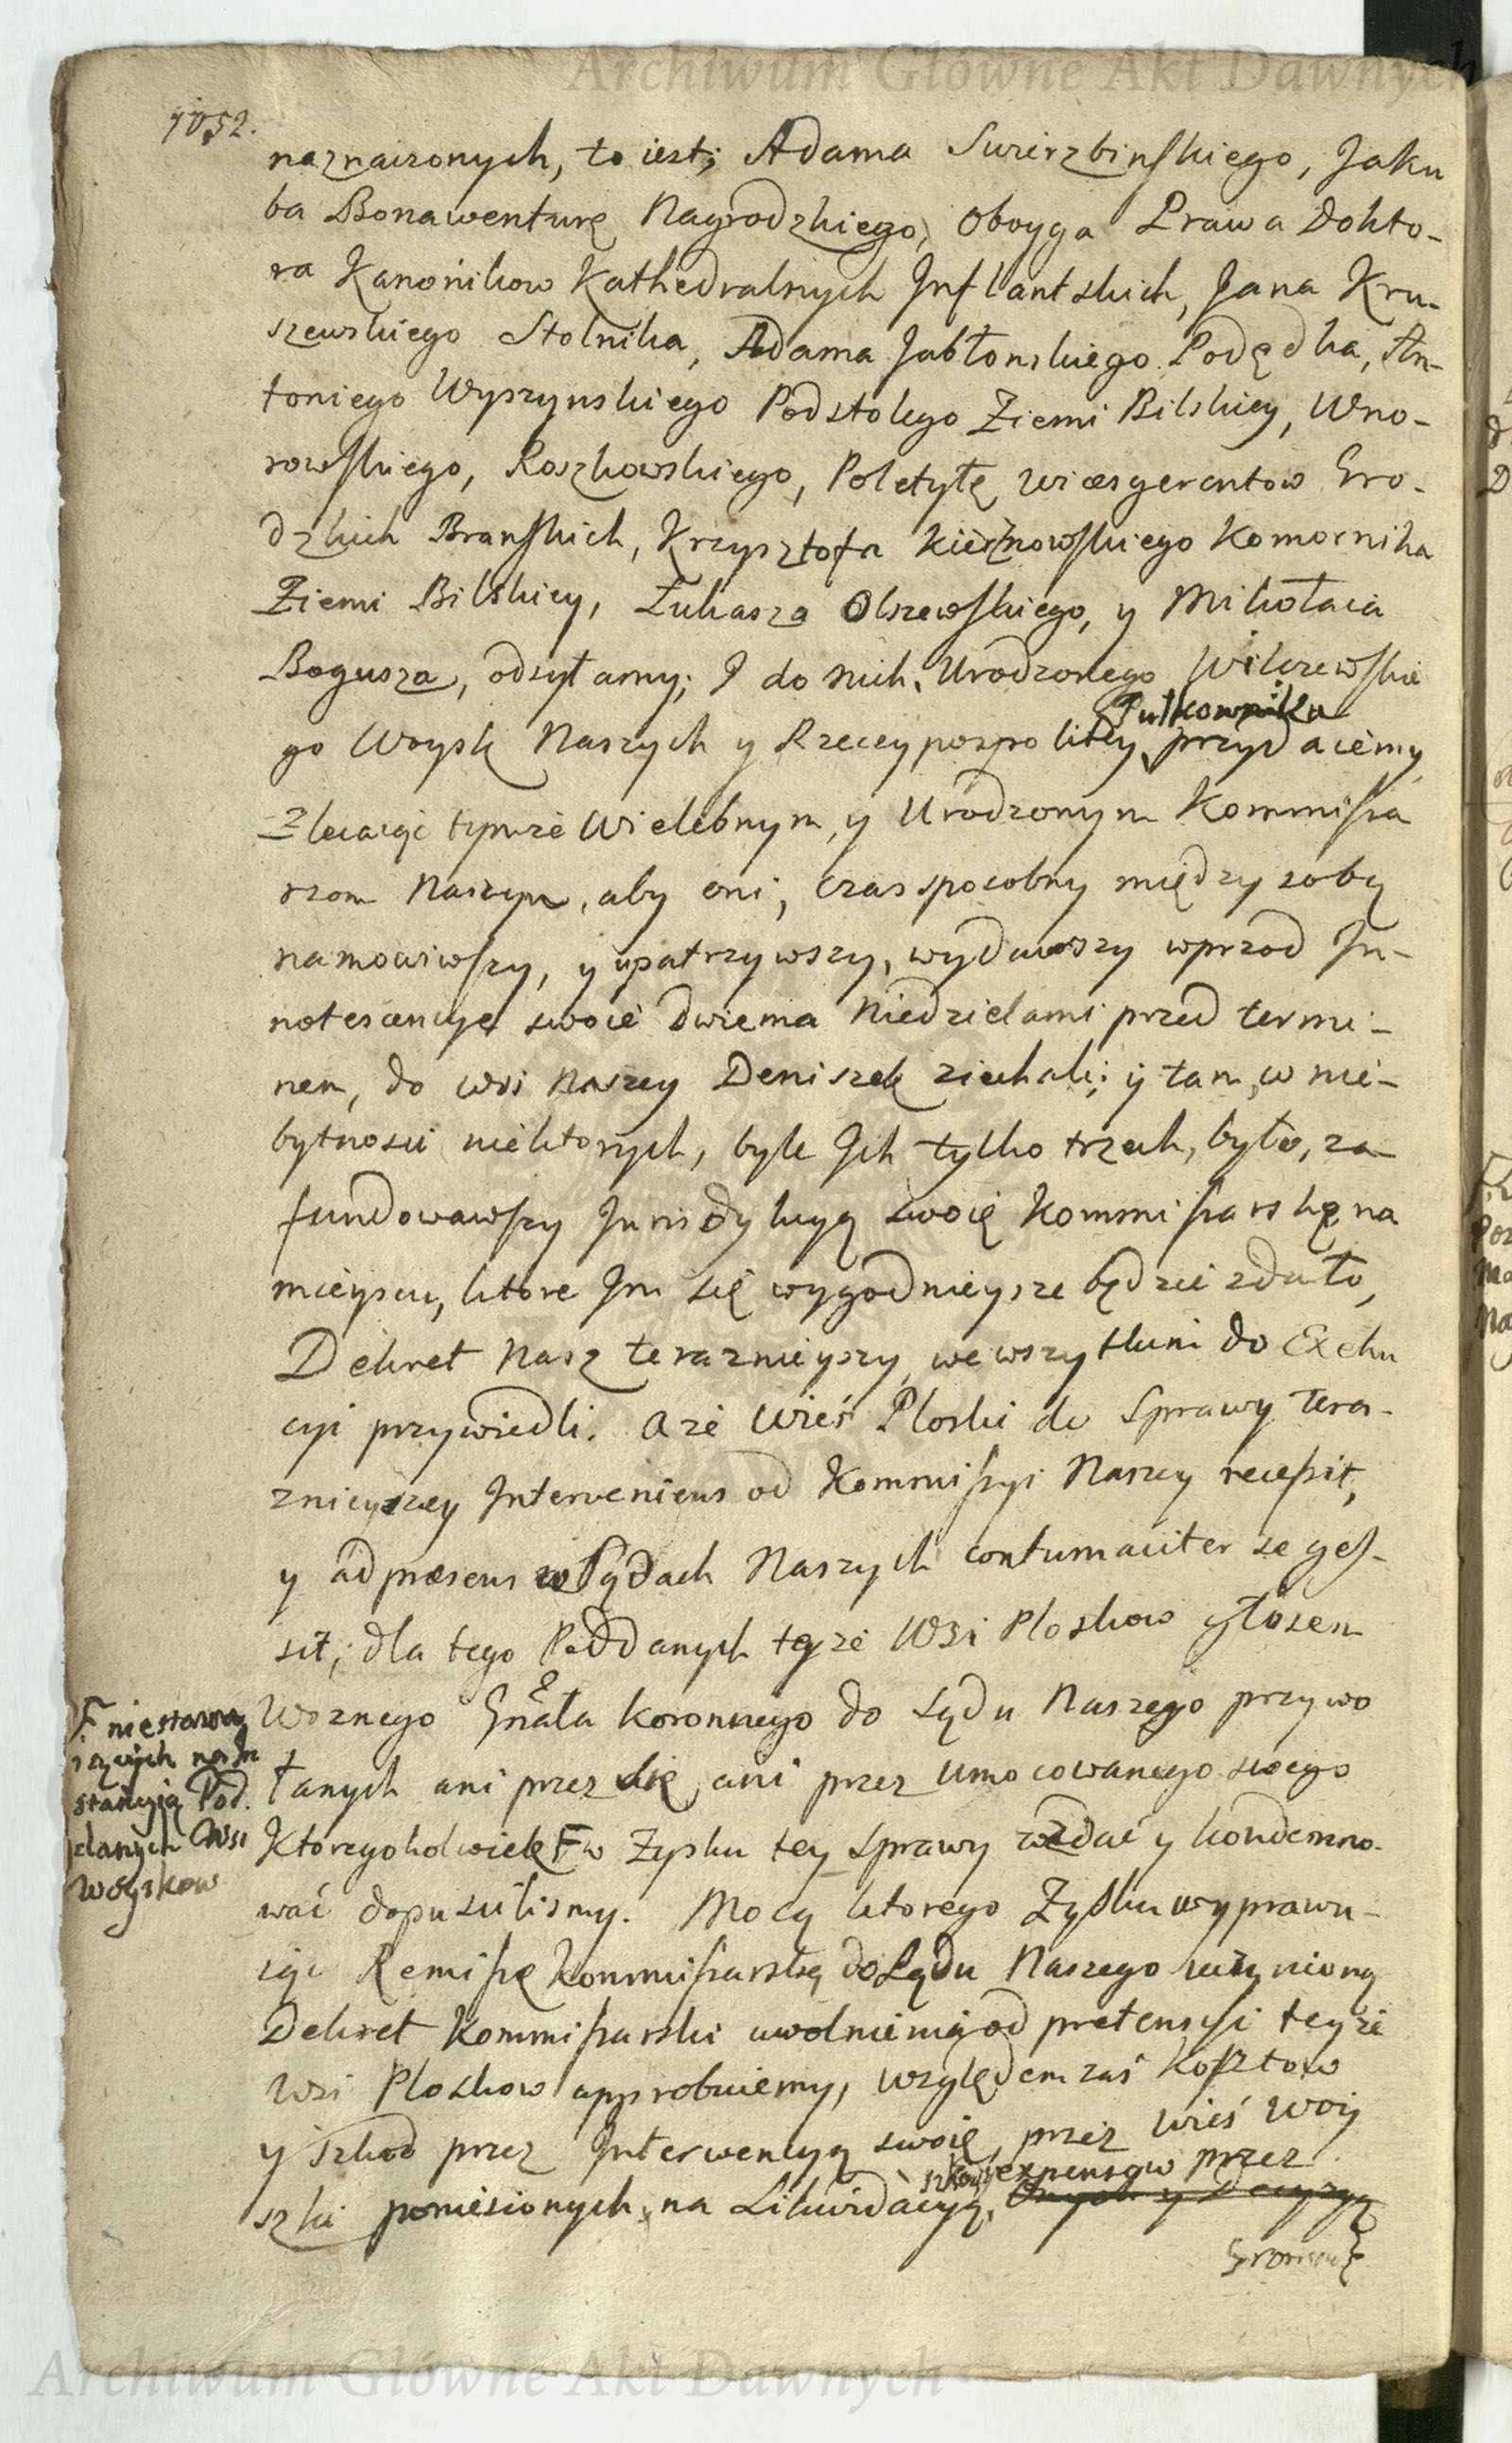 1052.
naznaczonych, to iest; Adama Swierzbinskiego, Jaku
ba Bonawenturę Nagrodzkiego, oboyga Prawa Dokto-
ra Kanonikow Kathedralnych Inflantskich, Jana Kru-
szewskiego Stolnika, Adama Jabłonskiego Podsędka, An-
toniego Wyszynskiego Podstolego Ziemi Bilskiey, Wno-
rowskiego, Roszkowskiego, Poletyłę Vicesgerentow Gro-
dzkich Branskich, Krzysztofa Kierznowskiego Komornika
Ziemi Bilskiey, Łukasza Olszewskiego, y Mikołaia
Bogusza, odsyłamy; I do nich, Urodzonego Wilczewskie
Pułkownika
go Woysk Naszych y Rzeceypospolitey przydaiemy,
zlecaiąc tymże Wielebnym, y Urodzonym Kommissa
rzom Naszym, aby oni, czas sposobny między sobą
namowiwszy, y upatrzywszy, wydawszy wprzod In-
notescencye swoie dwiema Niedzielami przed termi-
nem, do wsi Naszey Deniszek ziechali; y tam, w nie-
bytnosci niektorych, byle Ich tylko trzech, było, za-
fundowawszy Jurisdykcyą swoię Kommissarską na
mieyscu, ktore Im się wygodnieysze będzie zdało,
Dekret Nasz teraznieyszy, we wszytkim do Exeku
cyi przywiedli. A że Wieś Ploski do Sprawy tera-
znieyszey Interveniens od Kommissyi Naszey recessit,
y ad præsens w Sądach Naszych contumaciter se ges-
sit; dla tego Poddanych teyże Wsi Ploskow głosem
Woznego Gnała Koronnego do Sądu Naszego przywo
łanych ani przez się, ani przez umocowanego swego
ktoregokolwiek F w Zysku tey Sprawy wzdać y kondemno-
wać dopuscilismy. Mocą ktorego Zysku wyprawu-
iąc Remissę Kommissarską do Sądu Naszego uczynioną
Dekret Kommissarski uwolnienia od pretensyi teyże
Wsi Ploskow approbuiemy, względem zaś kosztow
y szkod przez Interwencyą swoię, przez Wieś Woy
szkod expensow przez
szki poniesionych, na Likwidacyą, onych y Decyzyą
Gromadę
F niestawa
iących na In
stancyią Pod.
danych Wsi
Woyskow